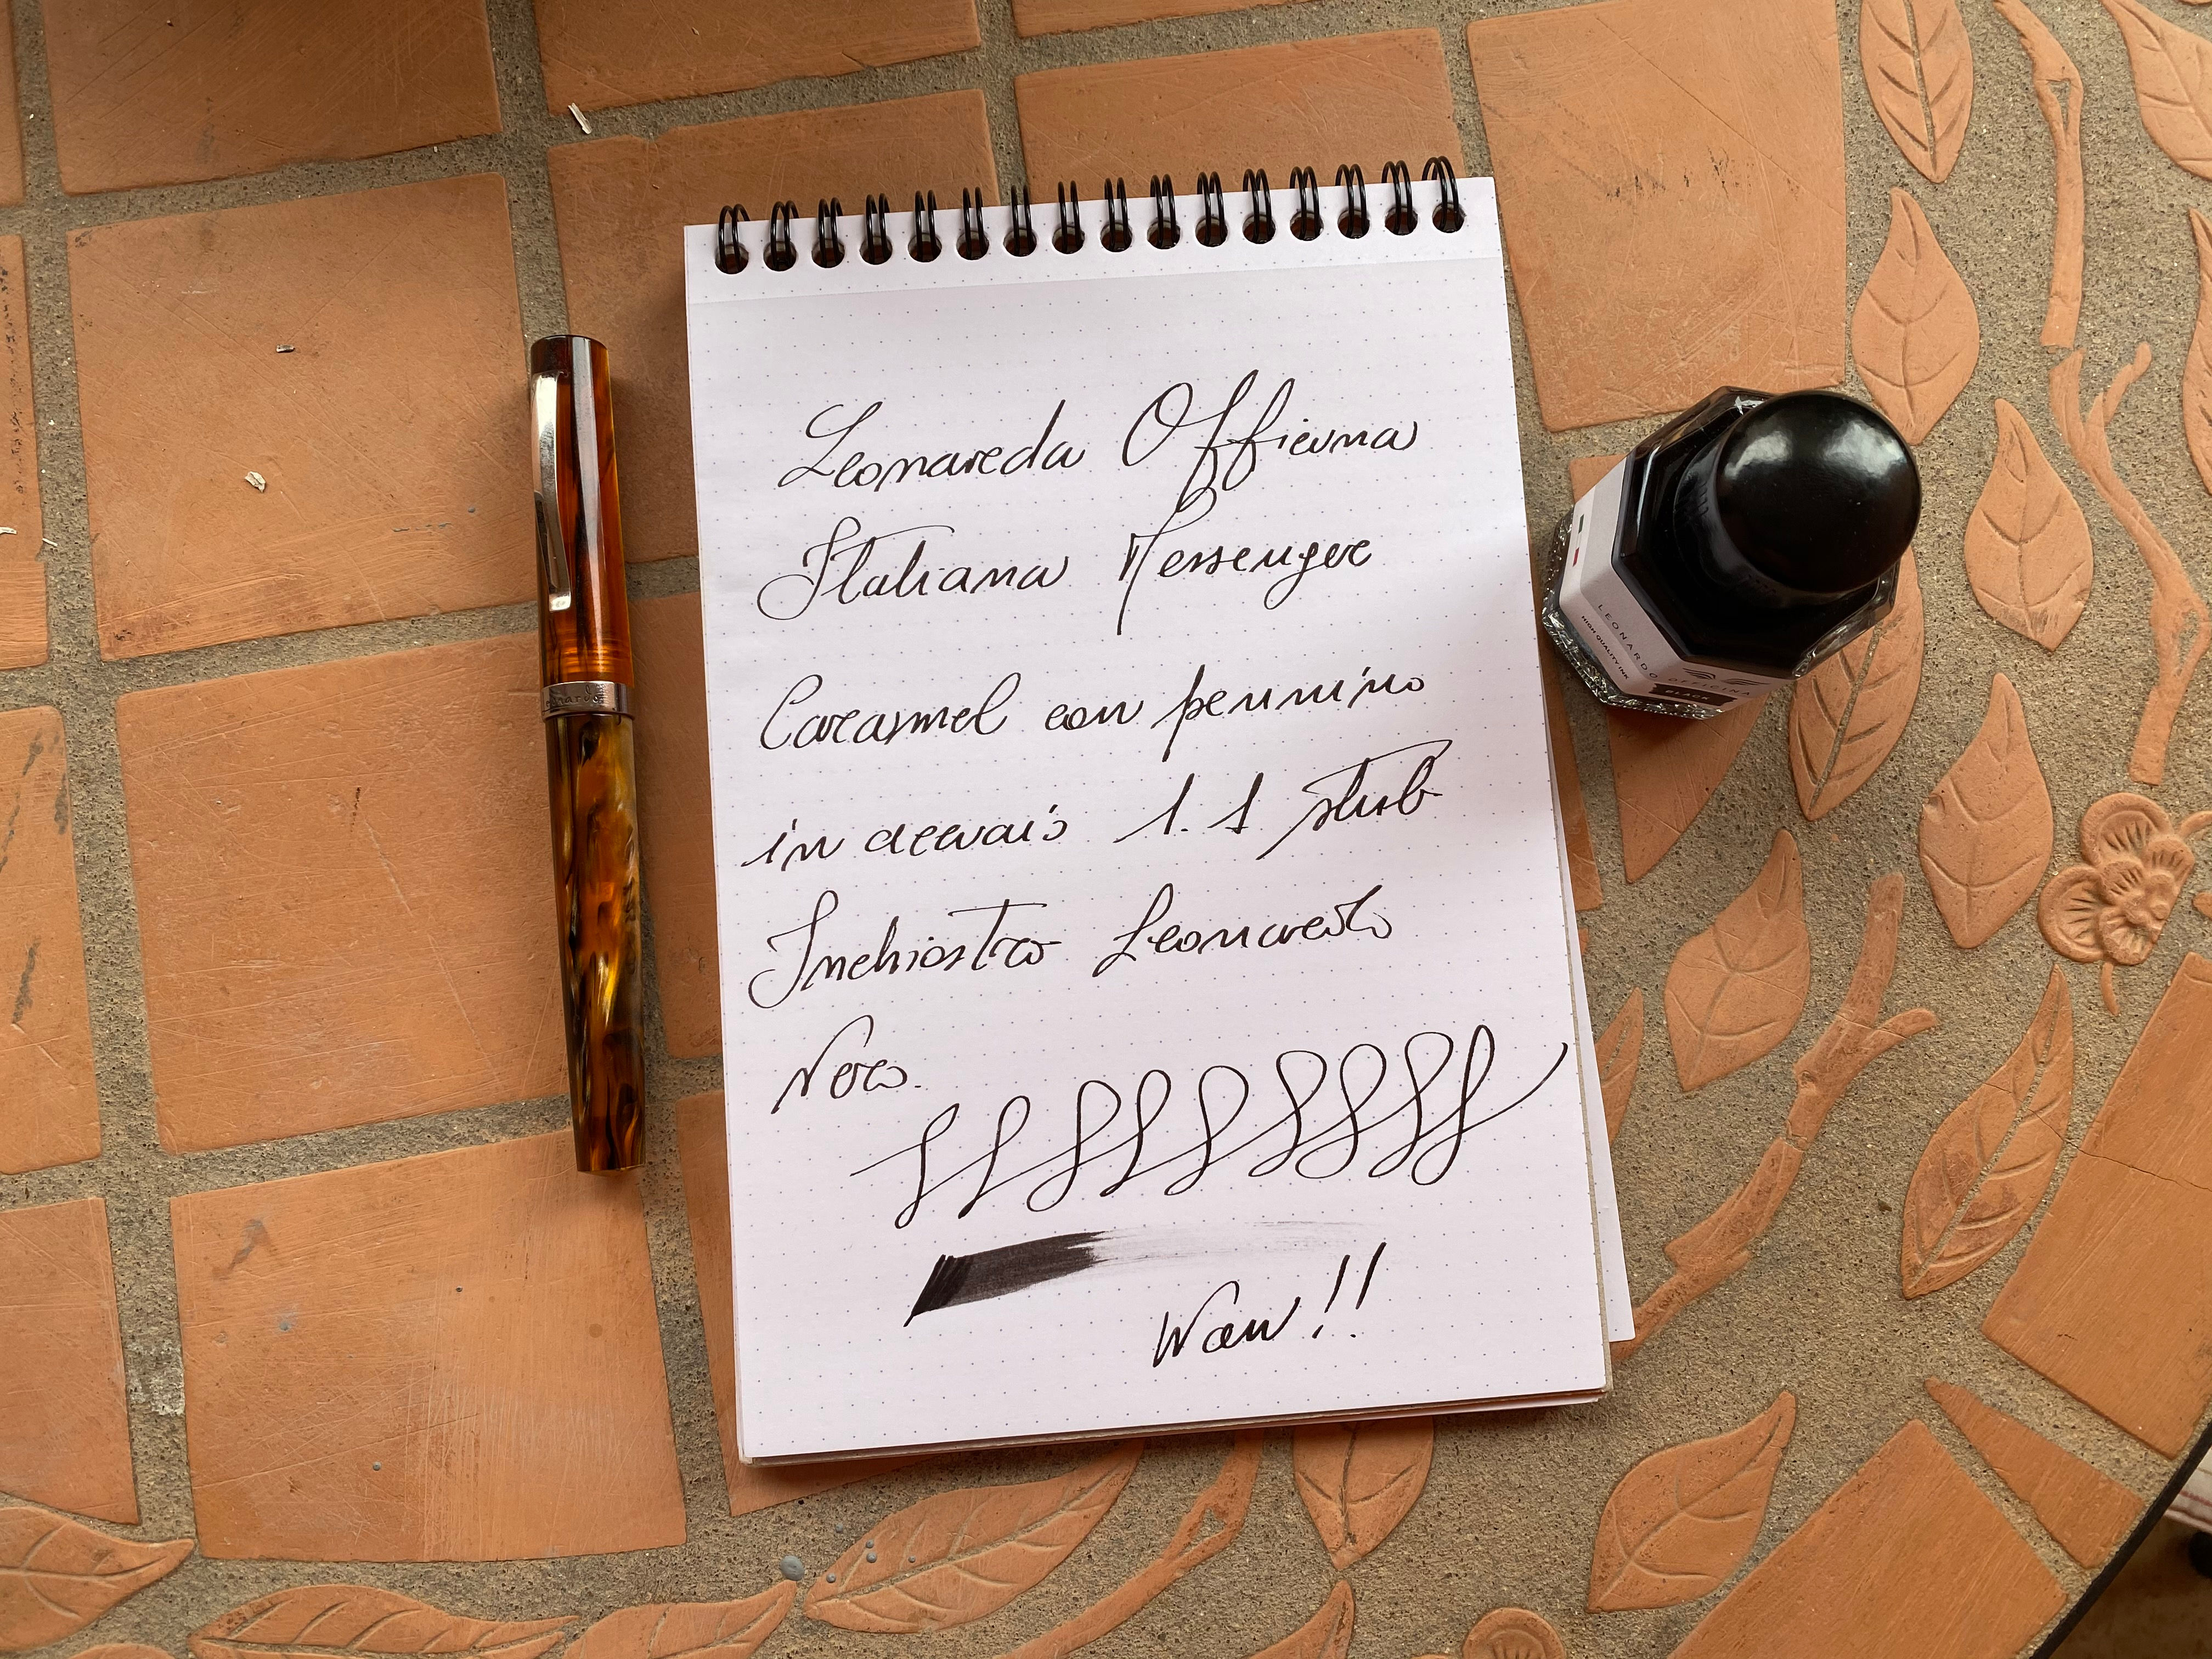 Leonardo Officina
Italiana Messenger
Caramel con pennino
in acciaio 1.1 stub
Inchiostro Leonardo
Nero.
Wow!!
LEONARDO OFFICINA
HIGH QUALITY INK
BLACK